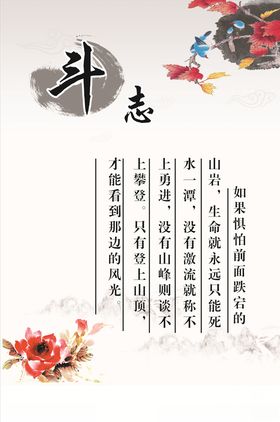 斗志
如果惧怕前面跌宕的
山岩，生命就永远只能死
水一潭，没有激流就称不
上勇进，没有山峰则谈不
上攀登。只有登上山顶，
才能看到那边的风光。